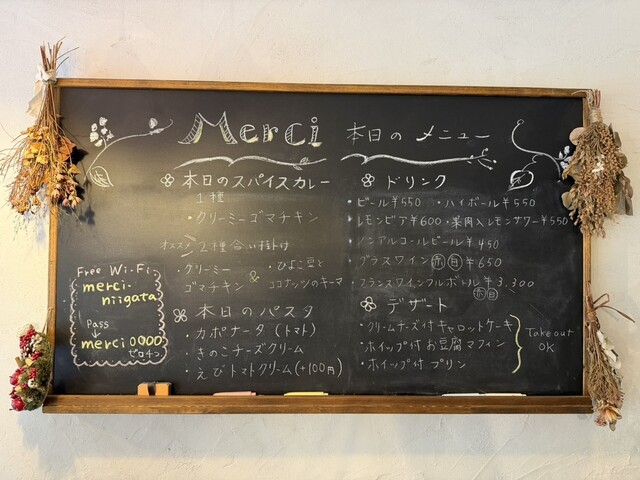 Merci 本日の メニュー
本日のスパイスカレー
1種
・クリーミーゴマチキン
オススメ 2種合い掛け
・クリーミーゴマチキン & ・ひよこ豆とココナッツのキーマ
本日のパスタ
・カポナータ (トマト)
・きのこチーズクリーム
・えびトマトクリーム(+100円)
Free Wi-Fi
merci-
niigata
Pass
↓
merci0000
ゼロ4こ
ドリンク
・ビール¥550 ・ハイボール¥550
・レモンビア¥600 ・果肉入レモンサワー¥550
・ノンアルコールビール ¥450
・グラスワイン 赤 白 ¥650
・フランスワインフルボトル ¥3,300
赤 白
デザート
・クリームチーズ付キャロットケーキ
・ホイップ付お豆腐マフィン
・ホイップ付 プリン
Take out
OK